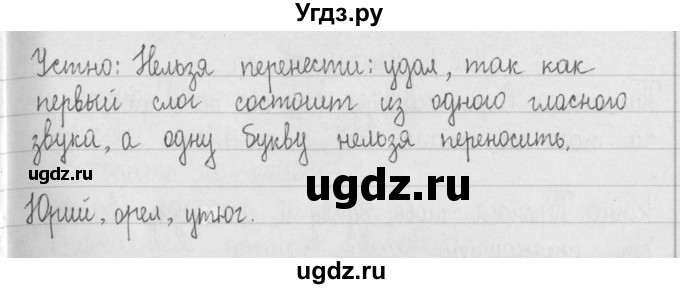 Угдз.ру
Устно: Нельзя перенести: удал, так как
первый слог состоит из одного гласного
звука, а одну букву нельзя переносить.
ugdz.ru
ugdz.ru
Юрий, орел, утюг.
ugdz.ru